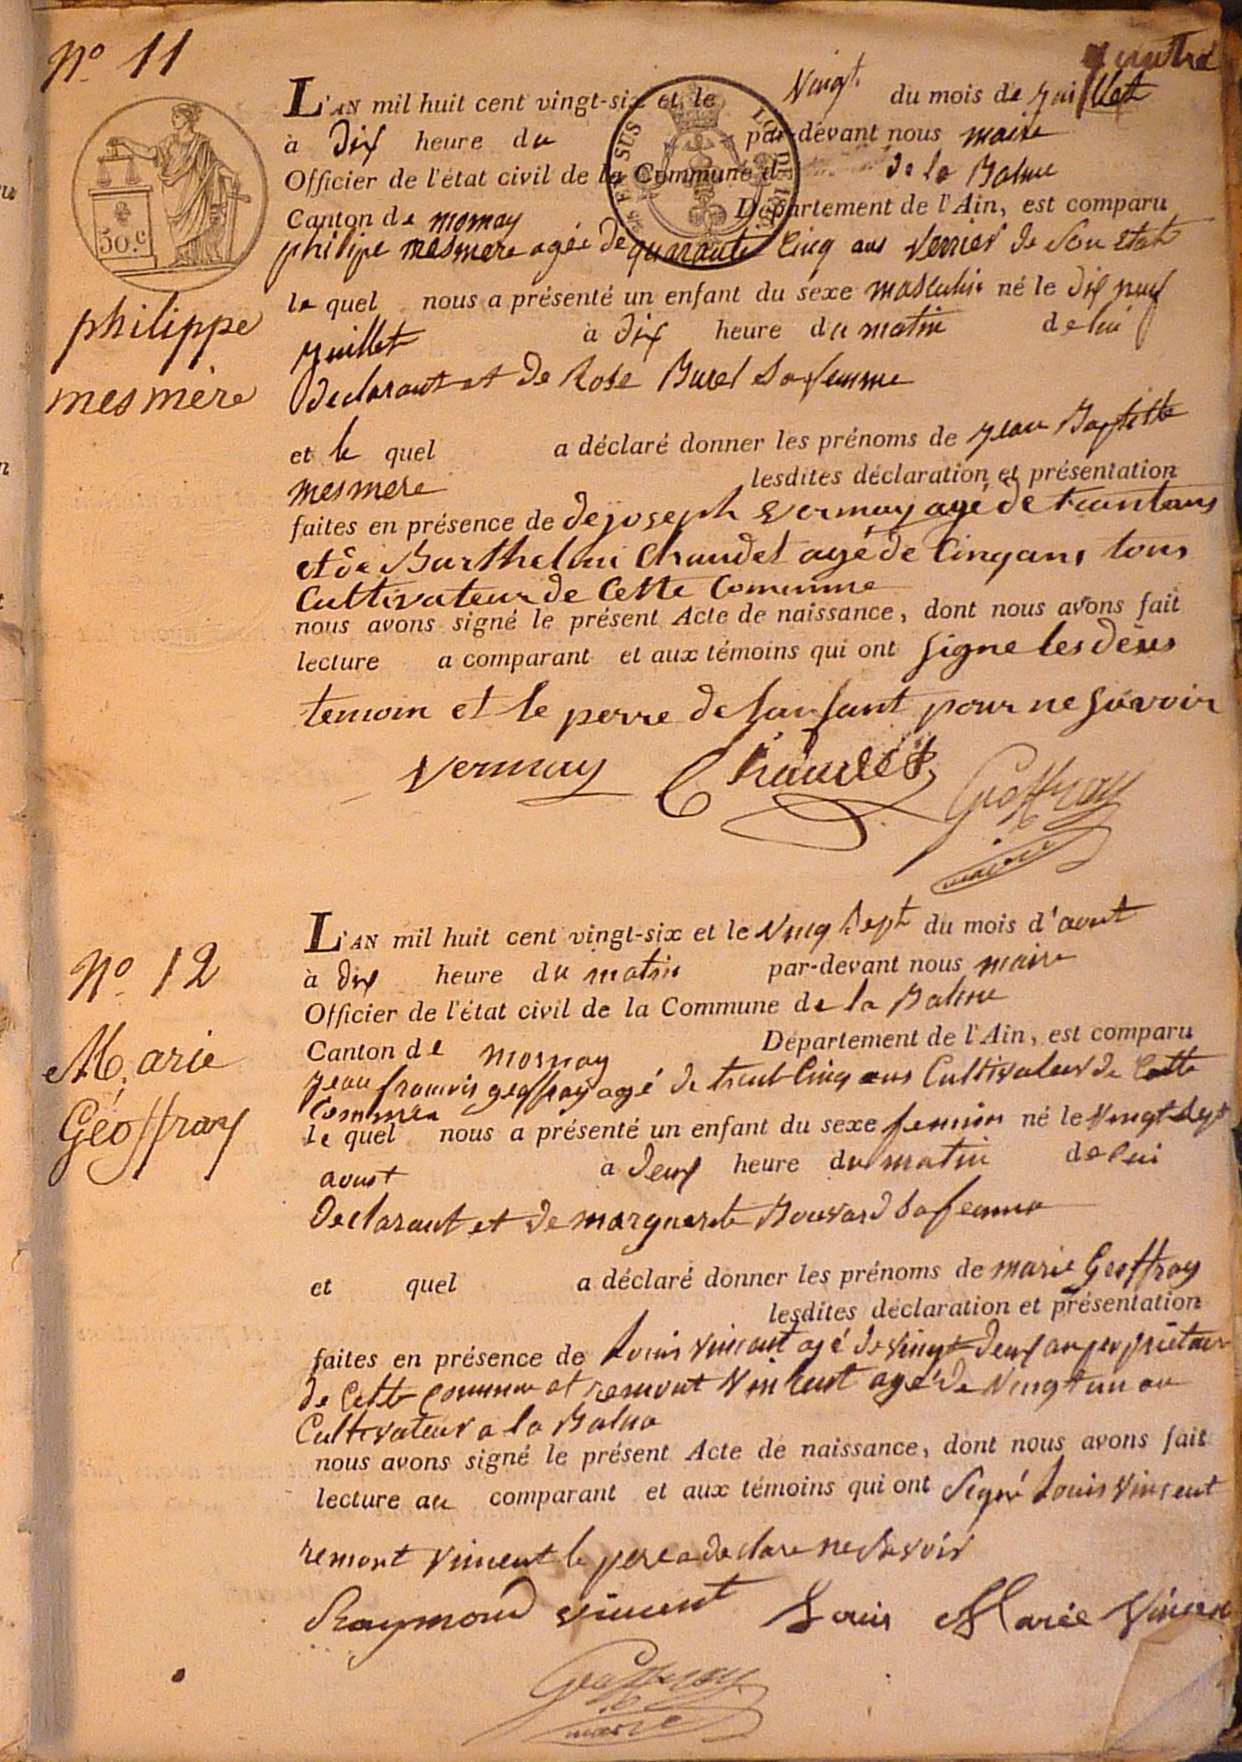 No 11
L'AN mil huit cent vingt-six et le Vingt du mois de juillet
50.c
à dix heure du par-devant nous maire
Officier de l'état civil de la Commune de de la Balme
Canton de mornay Département de l'Ain, est comparu
philipe mesmere agée de quarante cinq ans verrier de son état
philippe
mesmère
le quel nous a présenté un enfant du sexe masculin né le dix neuf
juillet à dix heure du matin de lui
declarant et de Rose Burel sa femme
et le quel a déclaré donner les prénoms de jean Baptiste
mesmere lesdites déclaration et présentation
faites en présence de de joseph vermay agé de
et de Barthelmi Chaudet agé de Cinq ans tous
Cultivateur de Cette Commune
nous avons signé le présent Acte de naissance, dont nous avons fait
lecture a comparant et aux témoins qui ont signe les deus
temoin et le perre de lanfant pour ne savoir
vermay Chaudet Geoffray
maire
No 12
Marie
Géoffray
L'AN mil huit cent vingt-six et le vingt sept du mois d'aout
à dix heure du matin par-devant nous maire
Officier de l'état civil de la Commune de la Balme
Canton de mornay Département de l'Ain, est comparu
jean francois geoffray agé de trent cinq ans Cultivateur de Cette
Commun
le quel nous a présenté un enfant du sexe feminin né le vingt sept
aoust a deux heure du matin de lui
Declarant et de marguerite Bouvard sa femme
et quel a déclaré donner les prénoms de marie Geoffray
lesdites déclaration et présentation
faites en présence de Louis vincent agé de vingt deux an propriétair
de Cette Commun et remont vincent agé de vingt un an
Cultivateur a la Balme
nous avons signé le présent Acte de naissance, dont nous avons fait
lecture au comparant et aux témoins qui ont signé Louis vincent
remont vincent le pere a declare ne savoir
Raymond vincent Louis Marie Vincen
Geoffray
maire